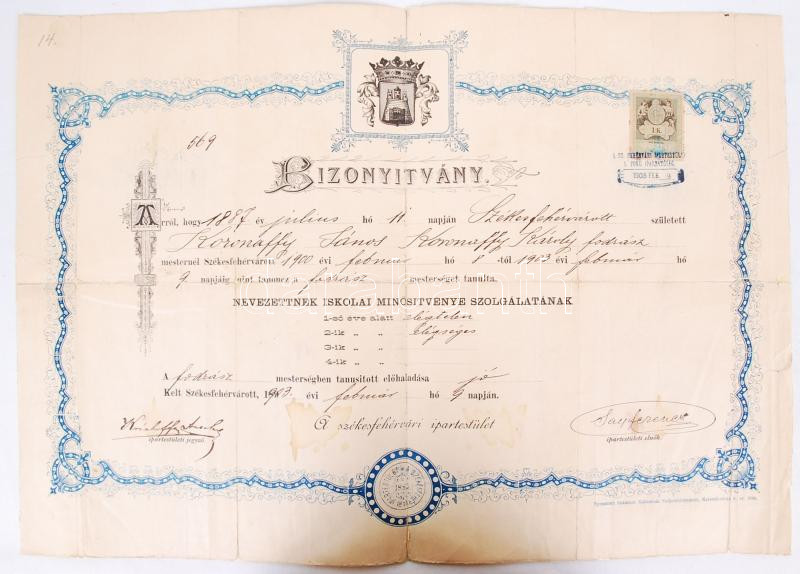 14.
569
1 K.
1903 FEB. 9
BIZONYITVÁNY.
Arról, hogy 1887 év julius hó 11 napján Székesfehérvárott született
Koronaffy János Koronaffy Károly fodrász
mesternél Székesfehérvárott 1900 évi február hó 8 -tól 1903 évi február hó
9 napjáig mint tanoncz a fodrász mesterséget tanulta.
NEVEZETTNEK ISKOLAI MINŐSITVÉNYE SZOLGÁLATÁNAK
1-ső éve alatt elégtelen
2-ik „ „ elégséges
3-ik „ „
4-ik „ „
A fodrász mesterségben tanusitott előhaladása jó
Kelt Székesfehérvárott, 1903. évi február hó 9 napján.
A székesfehérvári ipartestület
ipartestületi jegyző.
ipartestületi elnök.